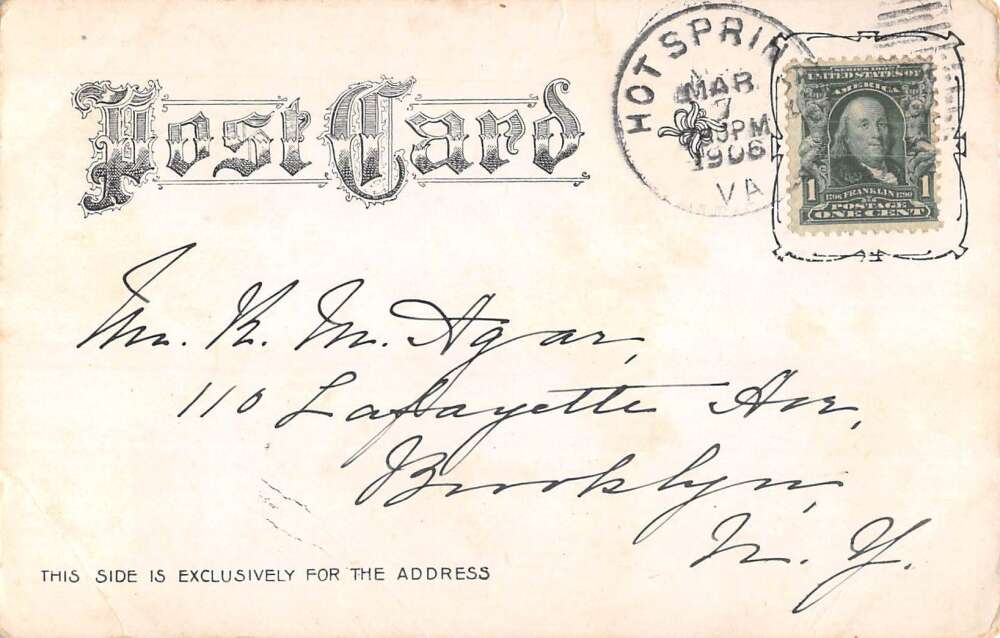 Post Card
HOT SPRIN
MAR
7
PM
1906
VA
SERIES 1902
UNITED STATES OF
AMERICA
1 1706 FRANKLIN 1790 1
POSTAGE
ONE CENT
Mr. K. M. Agar,
110 Lafayette Ave,
Brooklyn,
N. Y.
THIS SIDE IS EXCLUSIVELY FOR THE ADDRESS